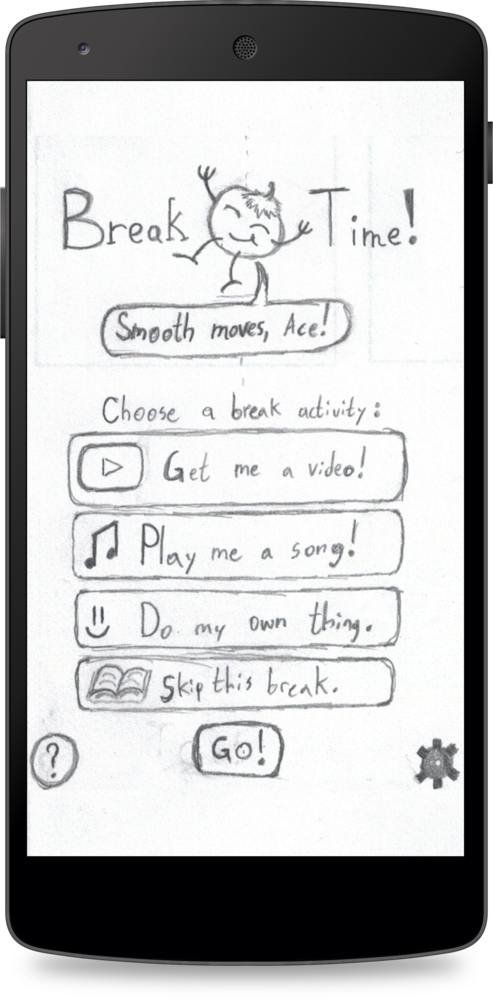 Break Time!
Smooth moves, Ace!
Choose a break activity:
Get me a video!
Play me a song!
Do my own thing.
Skip this break.
GO!
?